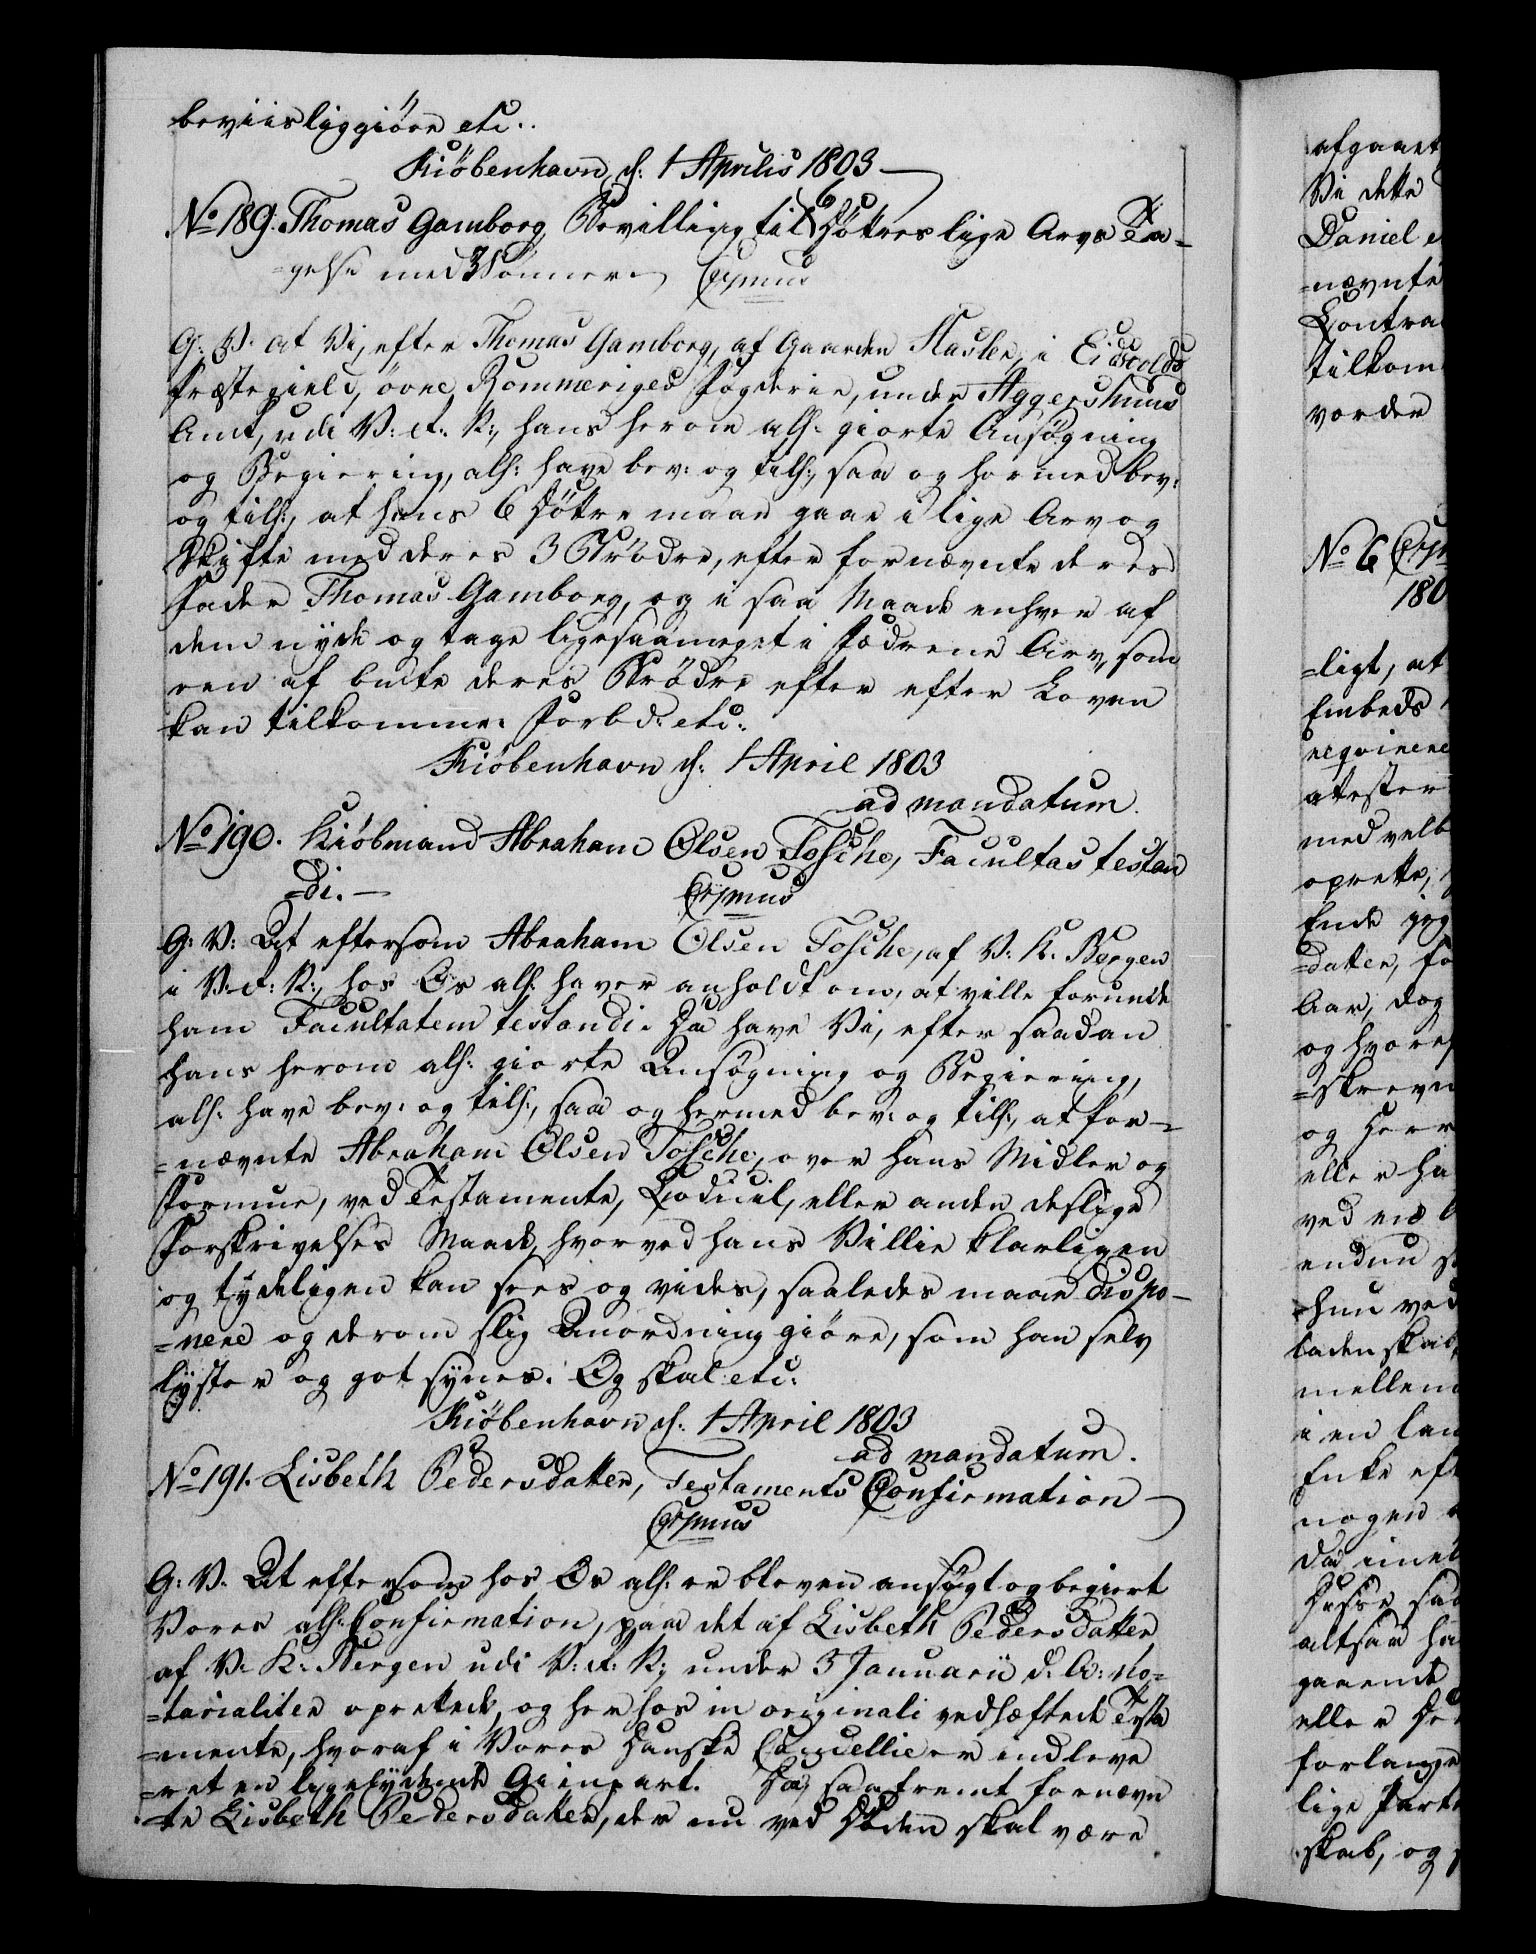 beviisliggiöre etc..
Kiöbenhavn, d: 1 Aprilis 1803
No 189. Thomas Gamborg Bevilling til 6 Döttres lige Arvs Ta-
=gelse med 3 Sönner
G: V: at Vi, efter Thomas Gamborg, af Gaarden Hasler, i Eidsvolds
Præstegield, övre Rommeriges Fogderie, under Aggershuus
Amt, udi V: R: N:, hans herom all: giorte Ansögning
og Begiering, all: have bev: og till:, saa og hermed bev:
og till:, at hans 6 Döttre maae gaae i lige Arv og
Skifte med deres 3 Brödre, efter fornævnte deres
Fader Thomas Gamborg, og i saa Maade enhver af
dem nyde og tage ligesaameget i Fædrene Arv, som
een af bemte deres Brödre efter efter Loven
kan tilkomme. Forbd: etc:
Kiöbenhavn d: 1 April 1803
ad mandatum.
No 190. Kiöbmand Abraham Olsen Fosche, Facultas testan
=di. –
G: V: At eftersom Abraham Olsen Fosche, af V: K: Bergen
i V: R: N:, hos Os all: haver anholdt om, at ville forunde
ham Facultatem testandi. Da have Vi, efter saadan
hans herom all: giorte Ansögning og Begiering,
all: have bev: og till:, saa og hermed bev: og till:, at for-
=nævnte Abraham Olsen Fosche, over hans Midler og
Formue, ved Testamente, Codicil, eller anden deslige
Forskrivelses Maade, hvorved hans Villie klarligen
og tydeligen kan sees og vides, saaledes maae dispo-
=nere og derom slig Anordning giöre, som han selv
lyster og got synes. Og skal etc:
Kiöbenhavn d: 1 April 1803
ad mandatum.
No 191. Lisbeth Pedersdatter, Testaments Confirmation
G: V: At eftersom hos Os all: er bleven ansögt og begiert
Vores all: Confirmation, paa det af Lisbeth Pedersdatter
af V: K: Bergen udi V: R: N: under 3 Januarii d: A: No=
=tarialiter oprettede, og herhos in originali vedhæftede Testa
=mente, hvoraf i Vores Danske Cancellie er indleve
=ret en ligelydende Gienpart. Da, saafremt fornævn
te Lisbeth Pedersdatter, der nu ved Döden skal være
afgaaet
Vi dette
Daniel
=nævnte
Contra
tilkom
vorder
No 6
180
=ligt, at
Embeds
requirere
attester
med velb
oprette,
Ende
=datter, fo
Aar, dog
og hvores
=skrevn
og Herr
eller ha
ved
endnu
hun ved
ladenskab
mellem
i en lan
Enke eft
nogen
da imel
Disse saa
altsaa ha
gaaende
eller
forlange
lige Part
skab, og